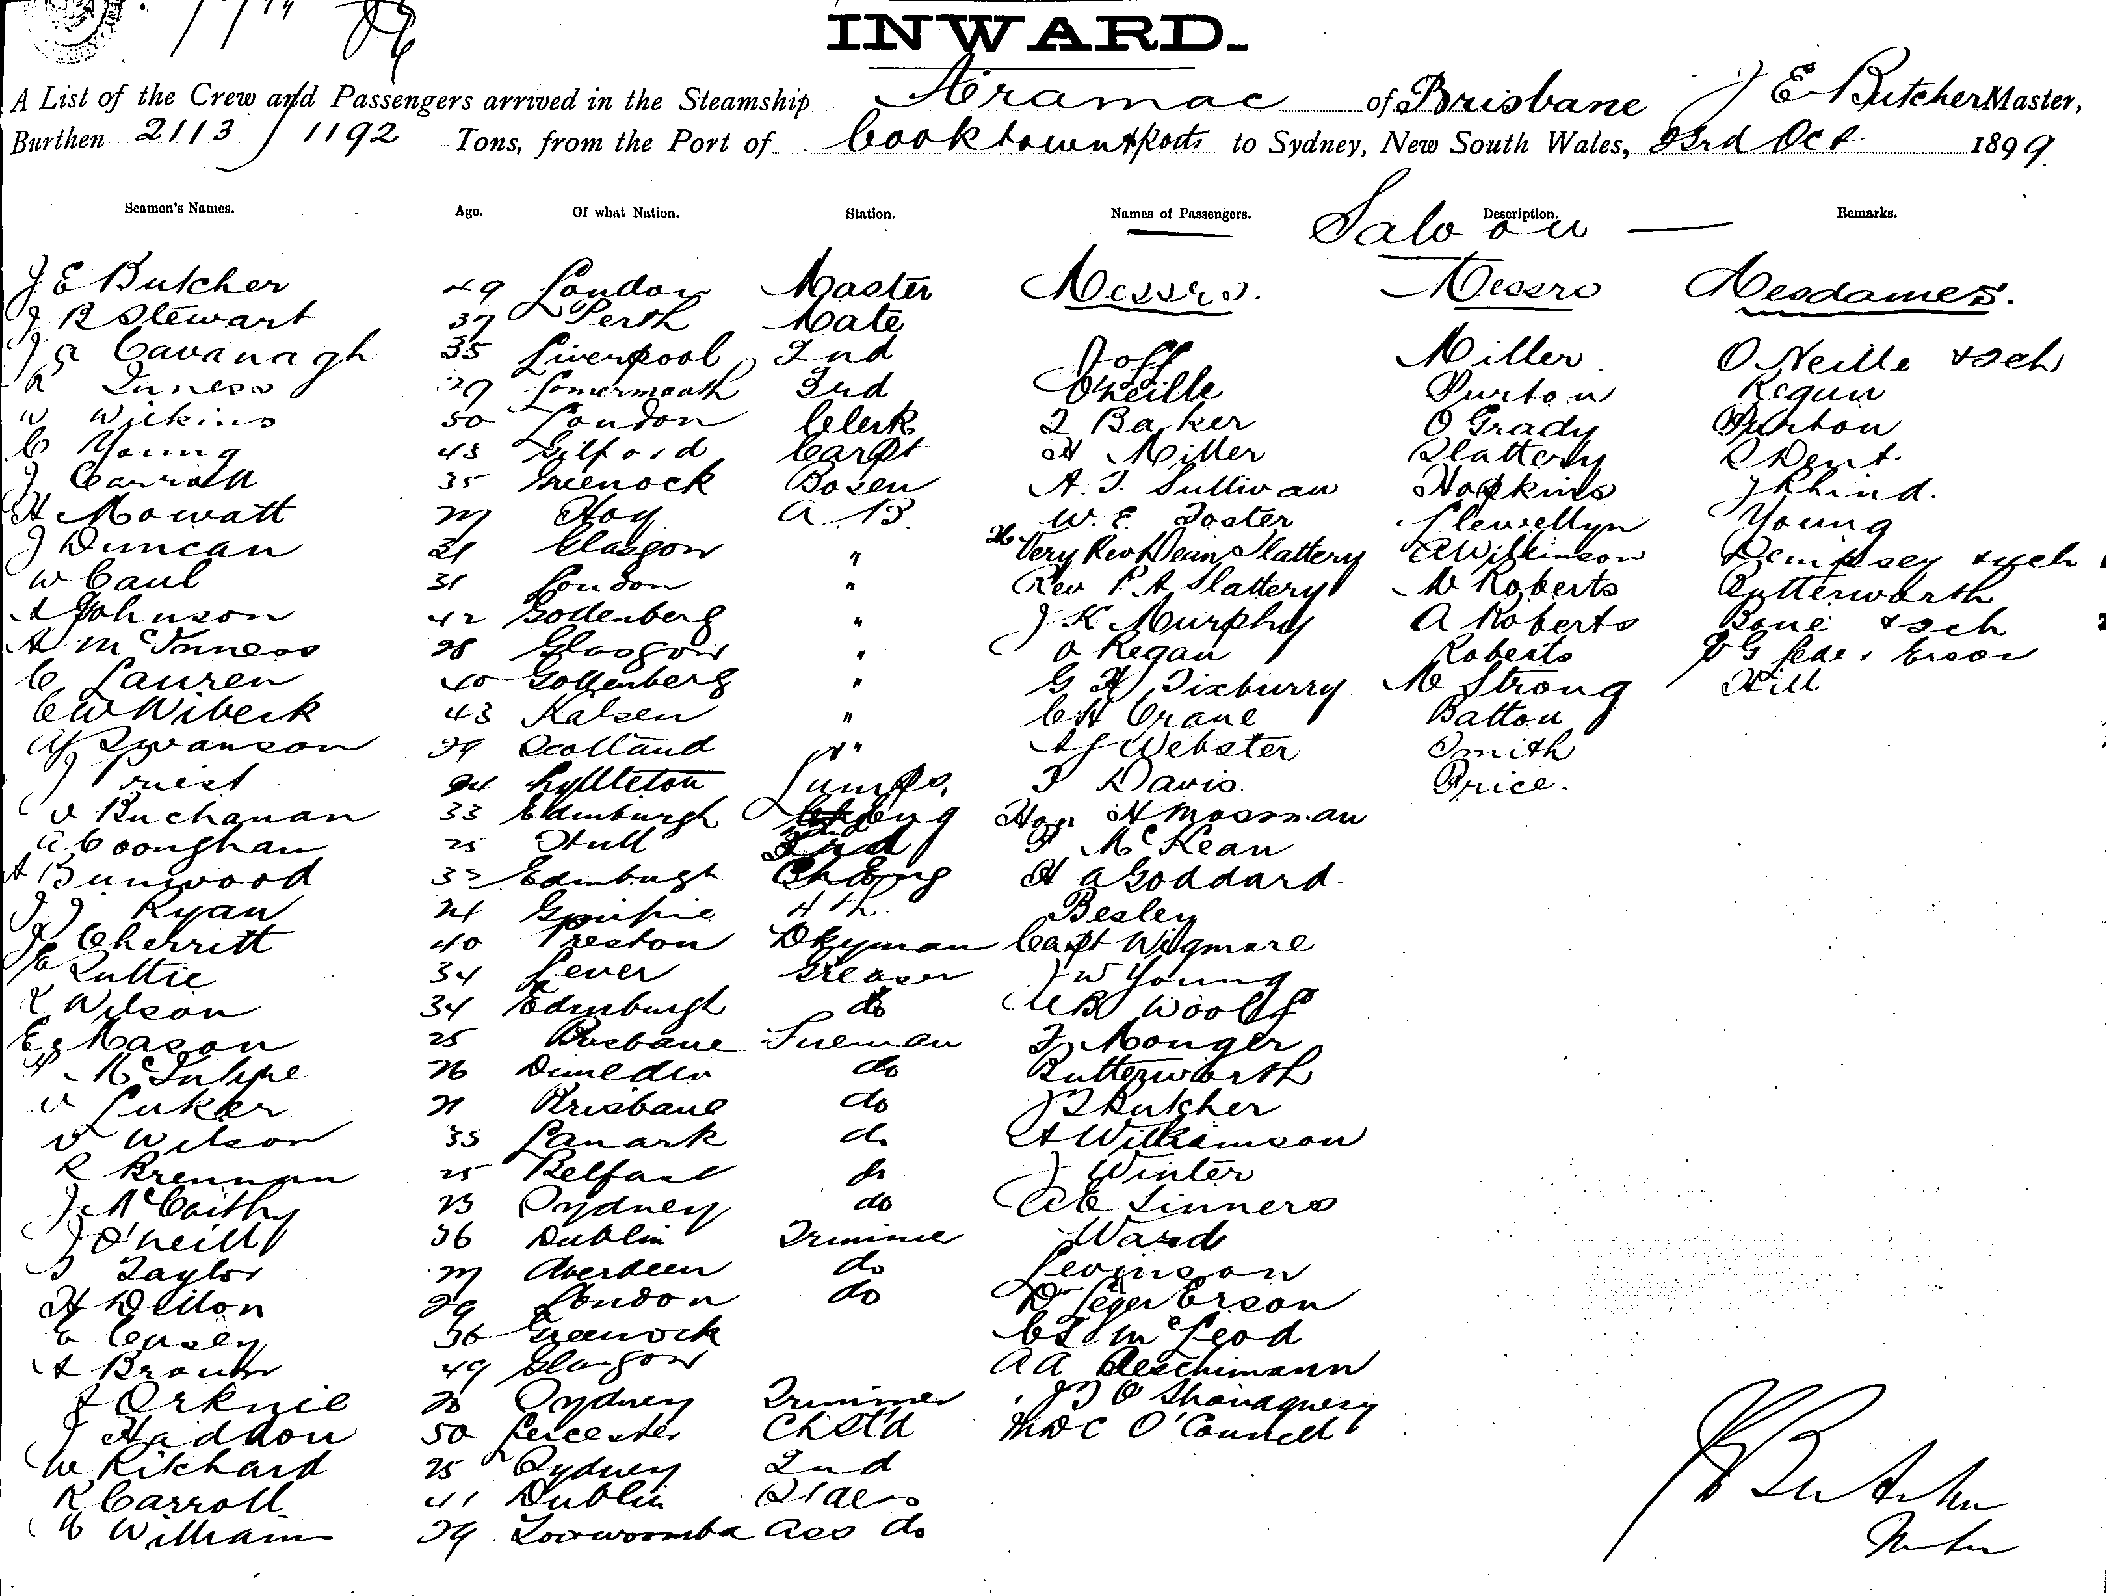 INWARD.
A List of the Crew and Passengers arrived in the Steamship Aramac of Brisbane J E Butcher Master,
Burthen 2113 / 1192 Tons, from the Port of Cooktown & ports to Sydney, New South Wales, 23rd Oct 1899.
Seamen's Names. Age. Of what Nation. Station. Names of Passengers. Description. Remarks.
Saloon
J E Butcher 49 London Master Messrs. Messrs Mesdames.
J R Stewart 37 Perth Mate
Cavanagh 35 Liverpool 2nd Joff Miller O Neille & sch
R Inness 29 3rd O'Neille Purton Regan
W Wilkins 50 London Clerk T Barker O Grady Purton
C Young 43 Gilford Carpt H Miller Slattery R Dent
J Carroll 35 Greenock Bosen A. J. Sullivan Hopkins J Rhind.
H Mowatt 27 Hoy A B. W. E. Foster Llewellyn Young
J Duncan 21 Glasgow " Very Rev Dean Slattery A Wilkinson Dempsey & sch
W Caul 31 London " Rev P. A Slattery W Roberts Butterworth
A Johnson 42 Gottenberg " J K Murphy A Roberts Bone & sch
A McInness 28 Glasgow " O Regan Roberts
C Lauren 40 Gottenberg " G H Tixburry M Strong Hill
C W Wibeck 43 Kalsen " C H Crane Batton
Swanson 29 Scotland " A J Webster Smith
J 24 Lyttleton Lamps. T Davis. Price.
Buchanan 33 Edinburgh Hon H Mossman
A Cooughan 25 Hull 3rd McKean
A Bunwood 32 Edinburgh Ch Eng H A Goddard.
J J Ryan 24 4th. Besley
Cherritt 40 Preston Dkyman Capt Wigmore
Luttie 34 Lever Greaser J W Young
R Wilson 34 Edinburgh do B Woolf
E Mason 25 Brisbane Fireman Monger
26 Dunedin do Butterworth
Luker 21 Brisbane do J Butcher
Wilson 33 Lanark do A Williamson
R Brennan 25 Belfast do J Winter
J McCarthy 23 Sydney do Sinners
J O'Neill 36 Dublin Trimmer Ward
Taylor 27 Aberdeen do Levinson
H Dillon 29 London do Dr Leger Erson
C Casey 36 Greenock McLeod
A Brown 49 Glasgow A A Aeschimann
J Orknie 20 Sydney Trimmer J J O Shanaguesy
J Haddon 50 Leicester Ch Std M D C O'Connell
W Ritchard 25 Sydney 2nd
R Carroll 41 Dublin
William 29 Toowoomba Ass do
J E Butcher
Master